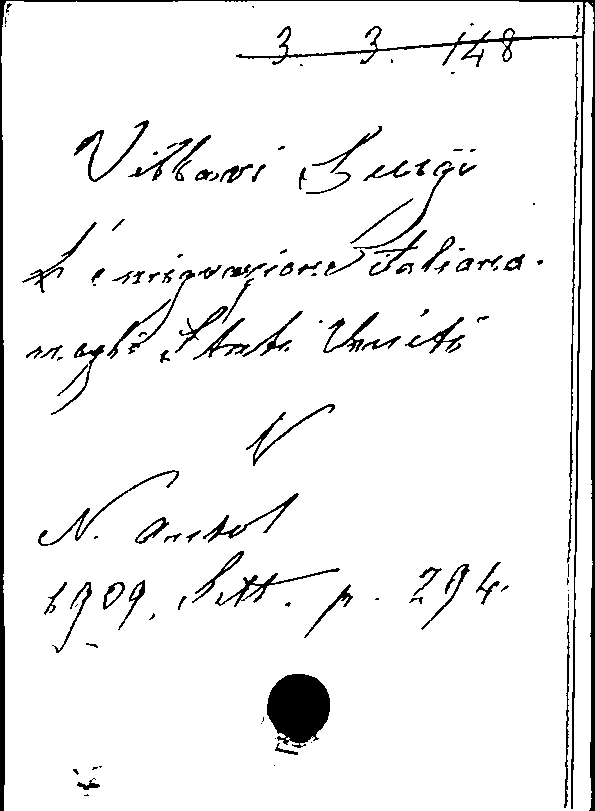 3. 3. 148
Villari Luigi
L'emigrazione italiana
negli Stati Uniti
N
N. Antol
1909, Sett. p. 294.